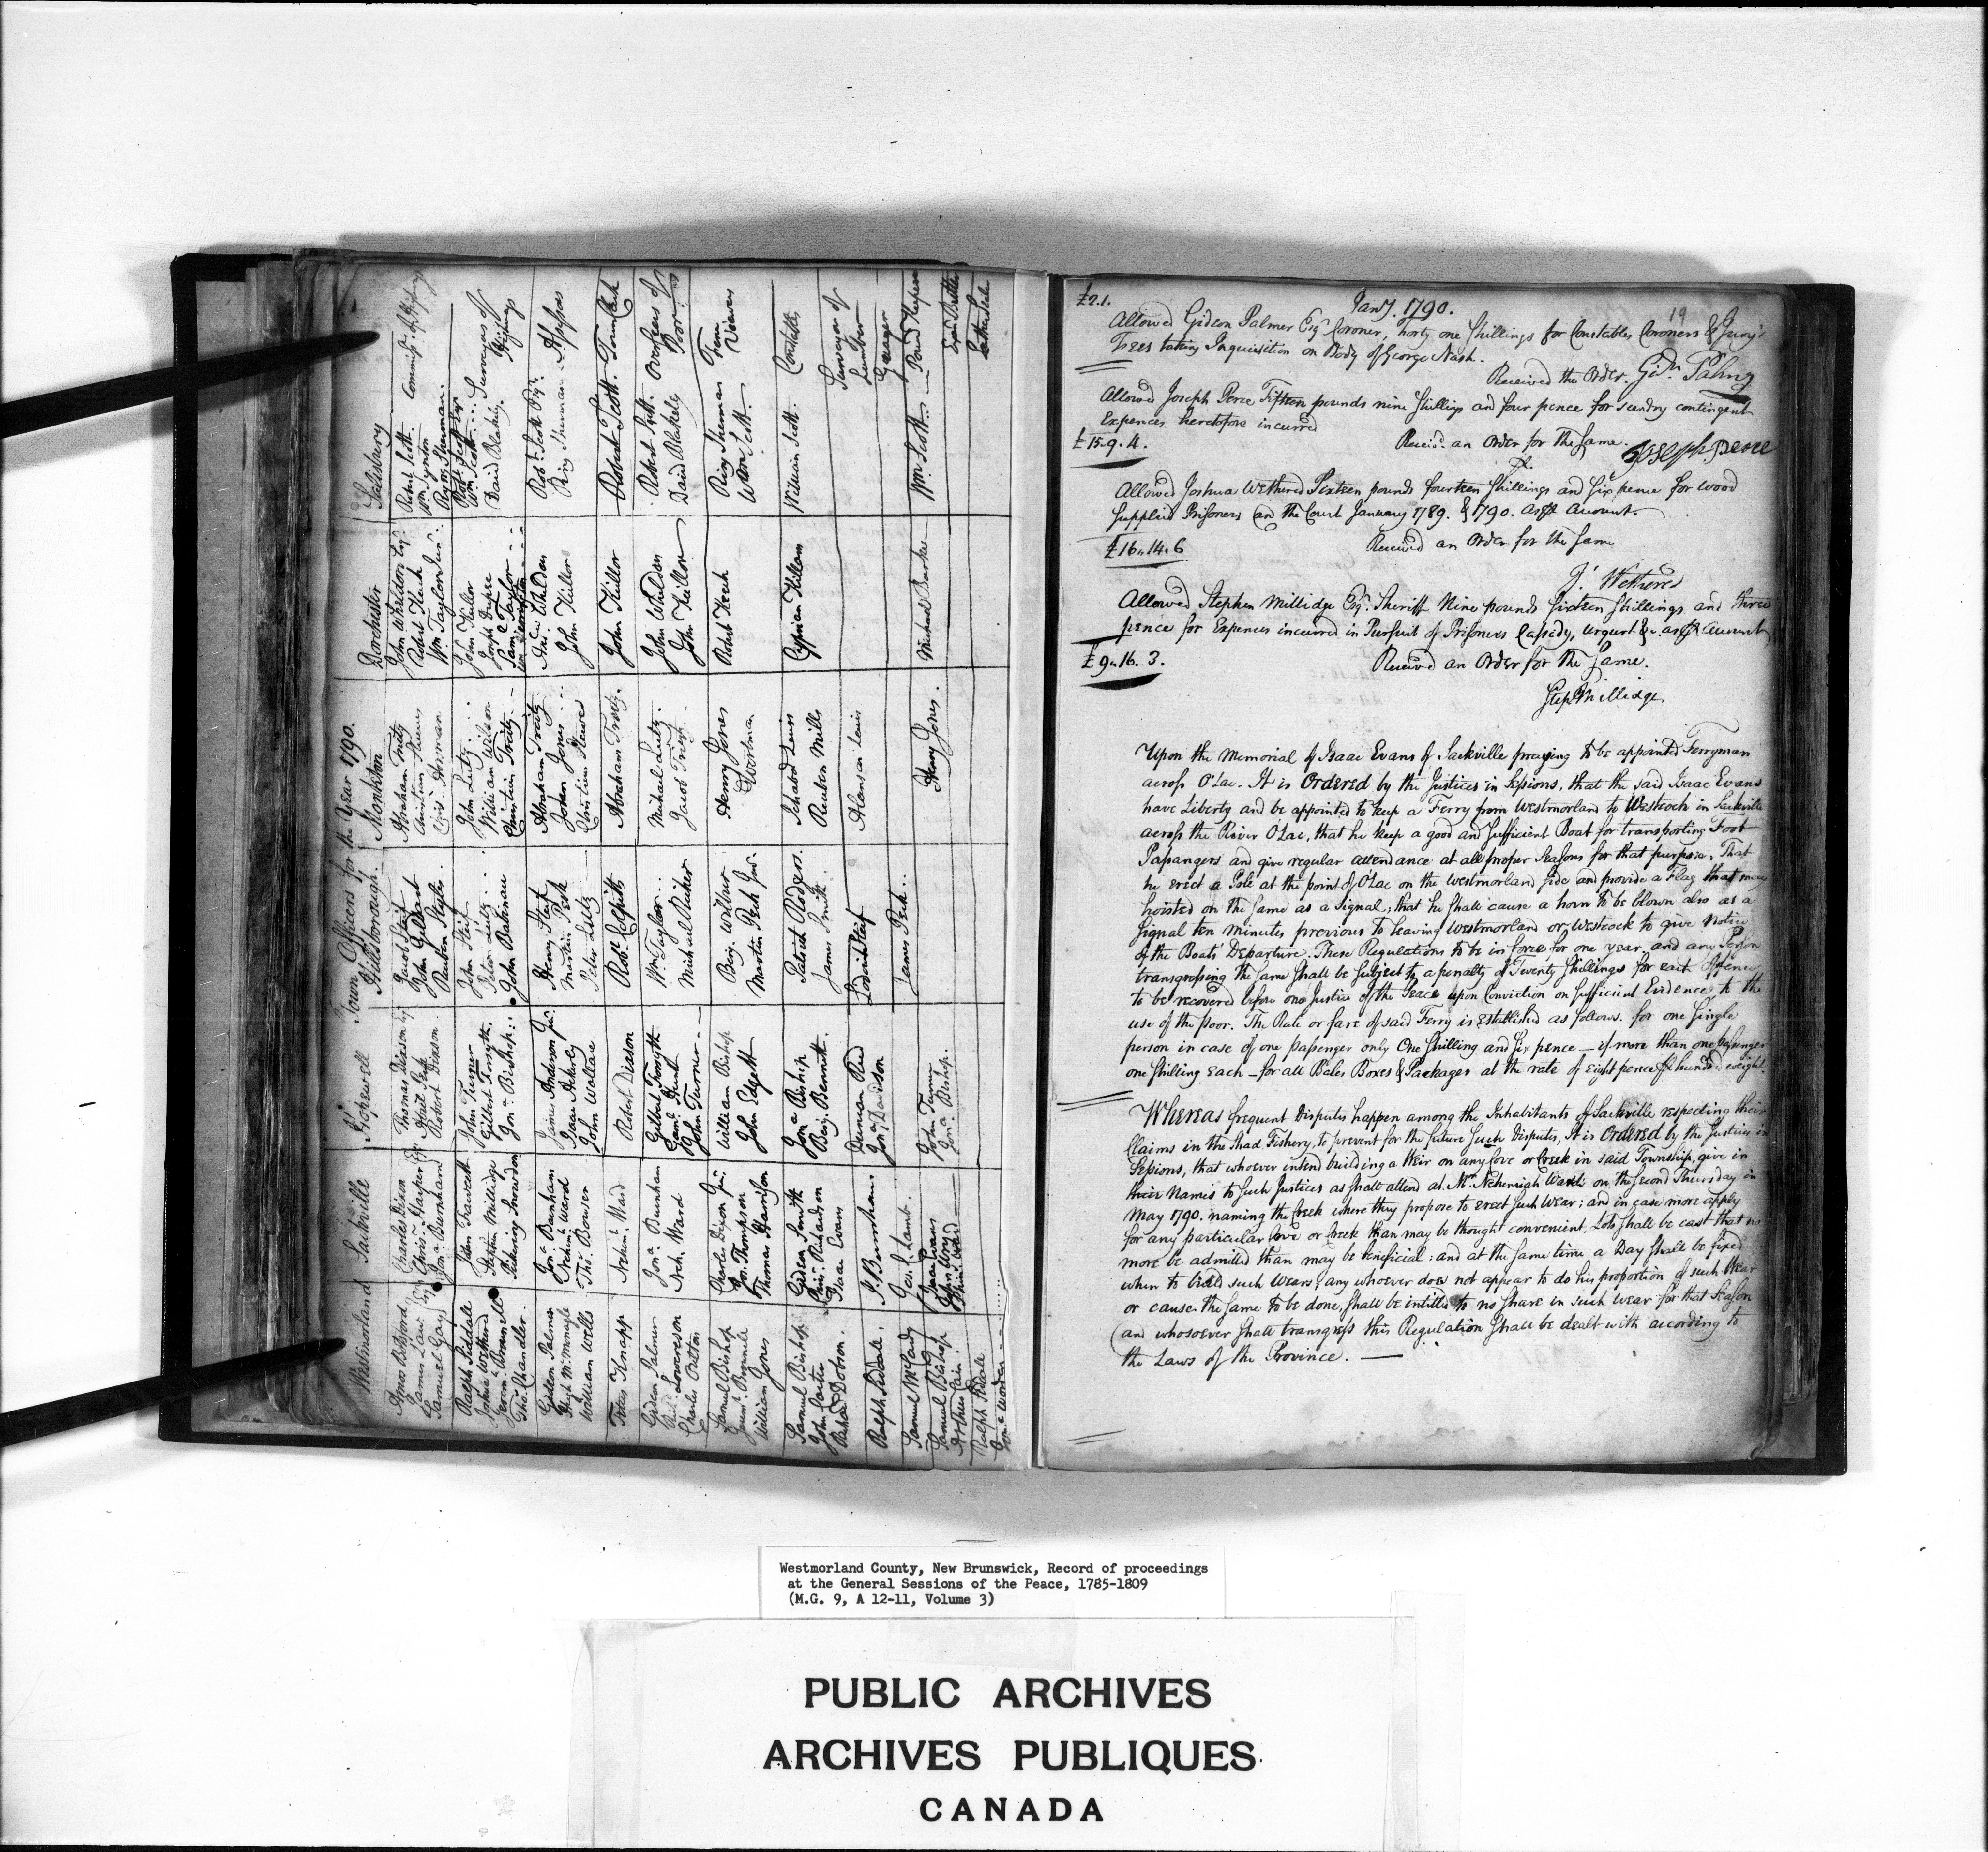 Town Officers for the Year 1790.
Westmorland Sackville Hopewell Hillsborough Monkton Dorchester Salisbury
Amos Botsford Charles Dixon Thomas Dixson Jacob Steif Abraham Tritz John Wheldon Esqr. Robert Scott.
James Law Esqr Chrisr. Harper Esqr John Gildart Robert Keech
Samuel Gay Jona. Burnham Robert Dixson Reuben Styles Wm Taylor Junr.
Ralph Siddall John Fawcett John Turner John Steif John Lutz John Killor Surveyors of
Joshua Wethered Stephen Millidge Gilbert Forsyth Peter Lutz William Wilson Wm Scott
Jerema. Brownell Pickering Snowdon Jona. Bishop John Bakinau Christian Tritz David Blakely
Thos. Chandler
Gideon Palmer Jona. Burnham James Anderson Junr. Henry Steif Abraham Tritz Andw. Whelden Robt. Scott Assessors
Hugh McMongle Nehema. Ward Martin Peck John Jones John Killor Ring Sherman
William Wells Thos. Bowser John Wallace Peter Lutz Christian Steeves
Titus Knapp Nehema. Ward Robert Dixson Robt. Colpitts Abraham Tritz John Killor Robert Scott. Town Clerk
Gideon Palmer Jona. Burnham Gilbert Forsyth Wm Taylor Michael Lutz John Whelden Robert Scott Overseers of
Neh. Ward John Turner Michael Ricker Jacob Tritz John Killor David Blakely Poor
Charles Patton
Samuel Bishop Charles Dixon Junr. William Bishop Benj. Wilbur Henry Jones Robert Keech Ring Sherman Fence
Jerema. Brownell Jon. Thompson John Edgett Martin Peck Junr. Wortman Wm. Scott Viewers
William Jones Thomas Harrison
Samuel Bishop Gideon Smith Jona. Bishop Patrick Rodger. Richard Lewis Cyprian Killam William Scott. Constables
Richardson Benj. Bennett James Smith Reuben Mills
Richard Dobson. Isaac Evans
Ralph Siddall. J. Burnham Duncan Reid Lodwick Steif Alenson Lewis Surveyor of
Jon. Davidson Lumber
Samuel McCardy Geo. Lamb. James Peck Henry Jones. Michael Burke Wm. Scott Pound Keepers
Samuel Bishop Isaac Evans John Turner
Jona. Bishop.
Ralph Siddall
Jany. 1790.
19
£2.1.
Allowed Gideon Palmer Esqr. Coroner, Forty one Shillings for Constables Coroners & Jury's
Fees taking Inquisition on Body of George Nash.
Received the Order. Gidn. Palmer
Allowed Joseph Peree Fifteen pounds nine Shillings and four pence for sundry contingent
Expences heretofore incurred
£15.9.4. Receivd. an Order for the Same. Joseph Peree
Allowed Joshua Wethered Sixteen pounds fourteen Shillings and Six pence for Wood
Supplied Prisoners and the Court January 1789. & 1790. as pr. Account.
£16.14.6 Received an Order for the Same
J. Wethered
Allowed Stephen Millidge Esqr. Sheriff Nine pounds Sixteen Shillings and three
pence for Expences incurred in Pursuit of Prisoners Casady, Urqurt &c. as pr. Account,
£9.16.3. Received an Order for the Same.
Step Millidge
Upon the Memorial of Isaac Evans of Sackville praying to be appointed Ferryman
across O'Lac. It is Ordered by the Justices in Sessions, that the said Isaac Evans
have Liberty and be appointed to keep a Ferry from Westmorland to Westcock in Sackville
across the River O'Lac, that he keep a good and Sufficient Boat for transporting Foot
Passangers and give regular attendance at all proper Seasons for that purpose. That
he erect a Pole at the point of O'Lac on the Westmorland Side and provide a Flag that may
hoisted on the same as a Signal; that he shall cause a horn to be blown also as a
Signal ten minutes previous to leaving Westmorland or Westcock to give notice
of the Boats Departure. These Regulations to be in force for one year, and any Person
transgressing the same shall be subject to a penalty of Twenty Shillings for each Offence
to be recovered before one Justice of the Peace upon Conviction on sufficient Evidence, to the
use of the Poor. The Rate or fare of said Ferry is Established as follows. for one Single
person in case of one passenger only One Shilling and Six pence — if more than one passenger
one Shilling each — for all Bales Boxes & Packages at the rate of Eight pence pr hundred weight.
Whereas frequent Disputes happen among the Inhabitants of Sackville respecting their
Claims in the Shad Fishery, to prevent for the future such Disputes, It is Ordered by the Justices in
Sessions, that whoever intend building a Weir on any Cove or Creek in said Township, give in
their Names to such Justices as shall attend at Mr. Nehemiah Wards on the Second Thursday in
May 1790. naming the Creek where they propose to erect such Wear; and in case more apply
for any particular Cove or Creek than may be thought convenient, Lots shall be cast that no
more be admitted than may be beneficial: and at the same time a Day shall be fixed
when to build such Wears; any whoever does not appear to do his proportion of such Wear
or cause the same to be done, shall be intitled to no share in such Wear for that Season
and whosoever shall transgress this Regulation shall be dealt with according to
the Laws of the Province. —
Westmorland County, New Brunswick, Record of proceedings
at the General Sessions of the Peace, 1785-1809
(M.G. 9, A 12-11, Volume 3)
PUBLIC ARCHIVES
ARCHIVES PUBLIQUES
CANADA